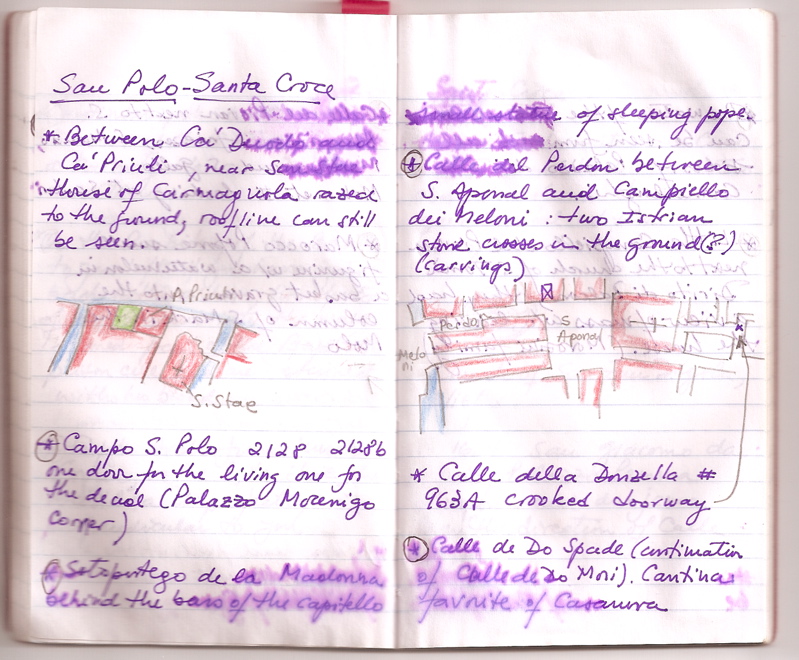 San Polo-Santa Croce
* Between Ca' Duodo and
Ca' Priuli, near San Stae
House of Carmagnola razed
to the ground, roofline can still
be seen.
A. Priuli
S. Stae
* Campo S. Polo 2128 2128b
one door for the living one for
the dead (Palazzo Mocenigo
Corner)
* Sotoportego de la Madonna
behind the bars of the capitello
small statue of sleeping pope.
* Calle del Perdon between
S. Aponal and Campiello
dei Meloni: two Istrian
stone crosses in the ground(?)
(carvings)
Perdon
S
Aponal
Melo
ni
* Calle della Donzella #
963A crooked doorway
* Calle de Do Spade (continuation
of Calle de Do Mori). Cantina
favorite of Casanova